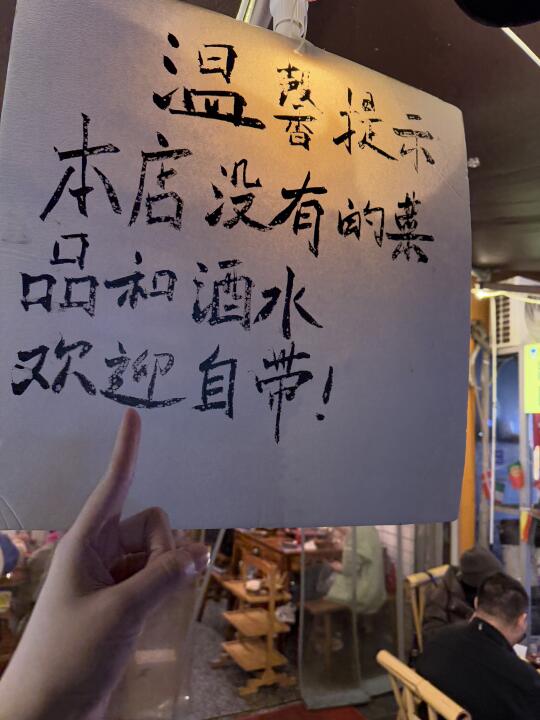 温馨提示
本店没有的菜
品和酒水
欢迎自带!